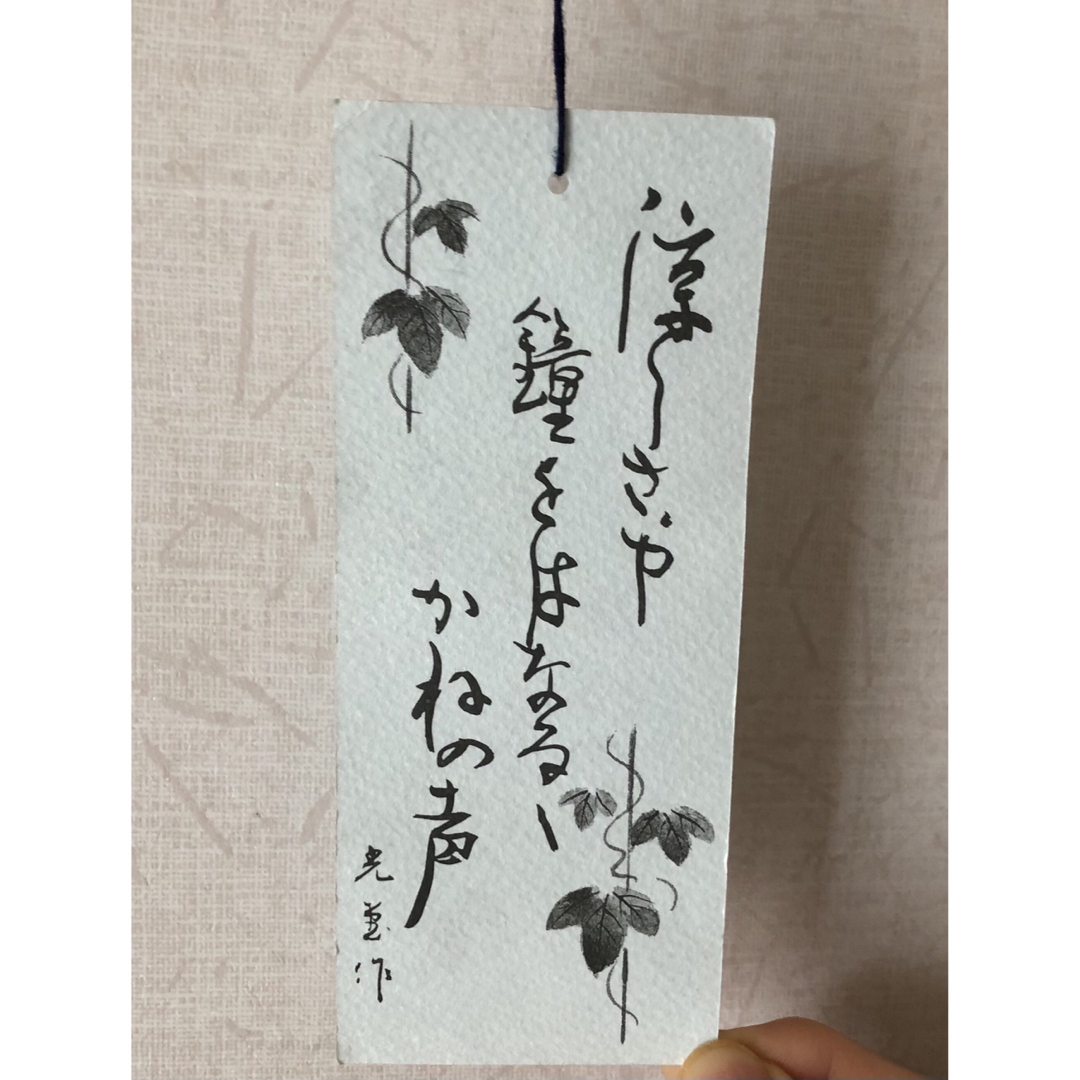 涼しさや
鐘をはなるゝ
かねの声
光 作